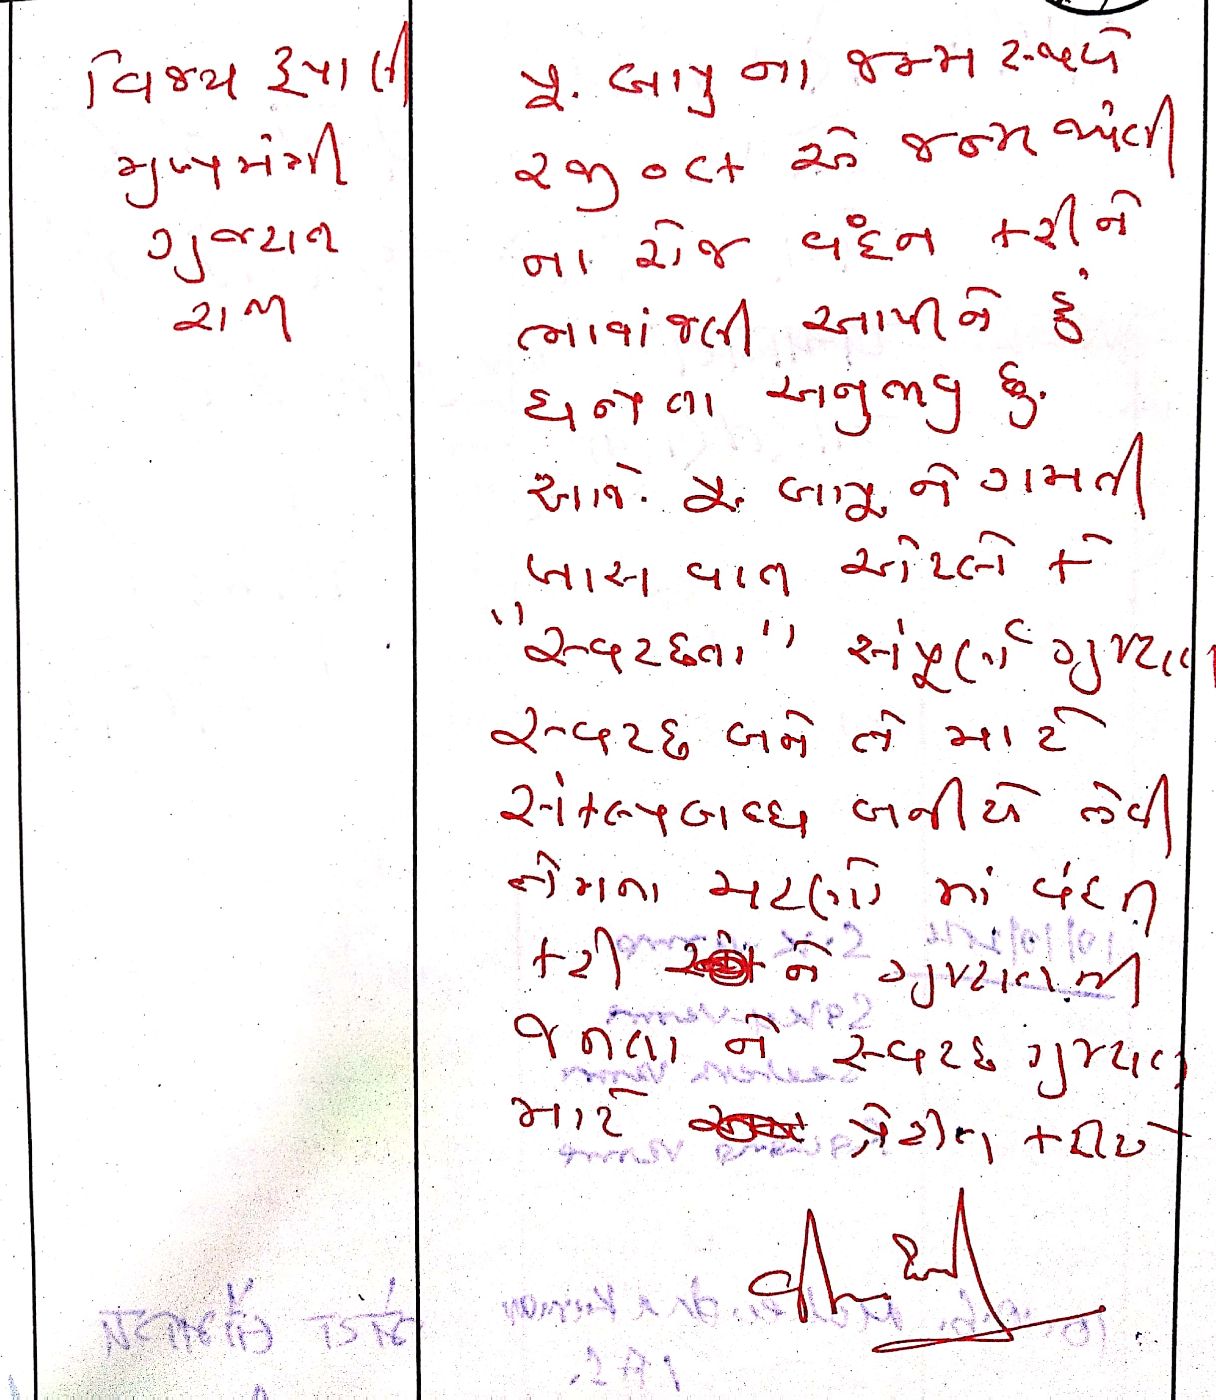 વિજય રૂપાણી
મુખ્યમંત્રી
ગુજરાત
રાજ્ય
પૂ. બાપુ ના જન્મ સ્થળે
૨જી oct એ જન્મ જયંતી
ના રોજ વંદન કરીને
ભાવાંજલી આપીને હું
ધન્યતા અનુભવુ છુ.
આજે પૂ. બાપૂ ને ગમતી
ખાસ વાત એટલે કે
"સ્વચ્છતા" સંપૂર્ણ ગુજરાત
સ્વચ્છ બને તે માટે
સંકલ્પબધ્ધ બનીયે તેવી
તેમના ચરણો માં વંદન
કરી ને ગુજરાતની
જનતા ને સ્વચ્છ ગુજરાત
માટે પ્રેરીત કરીયે